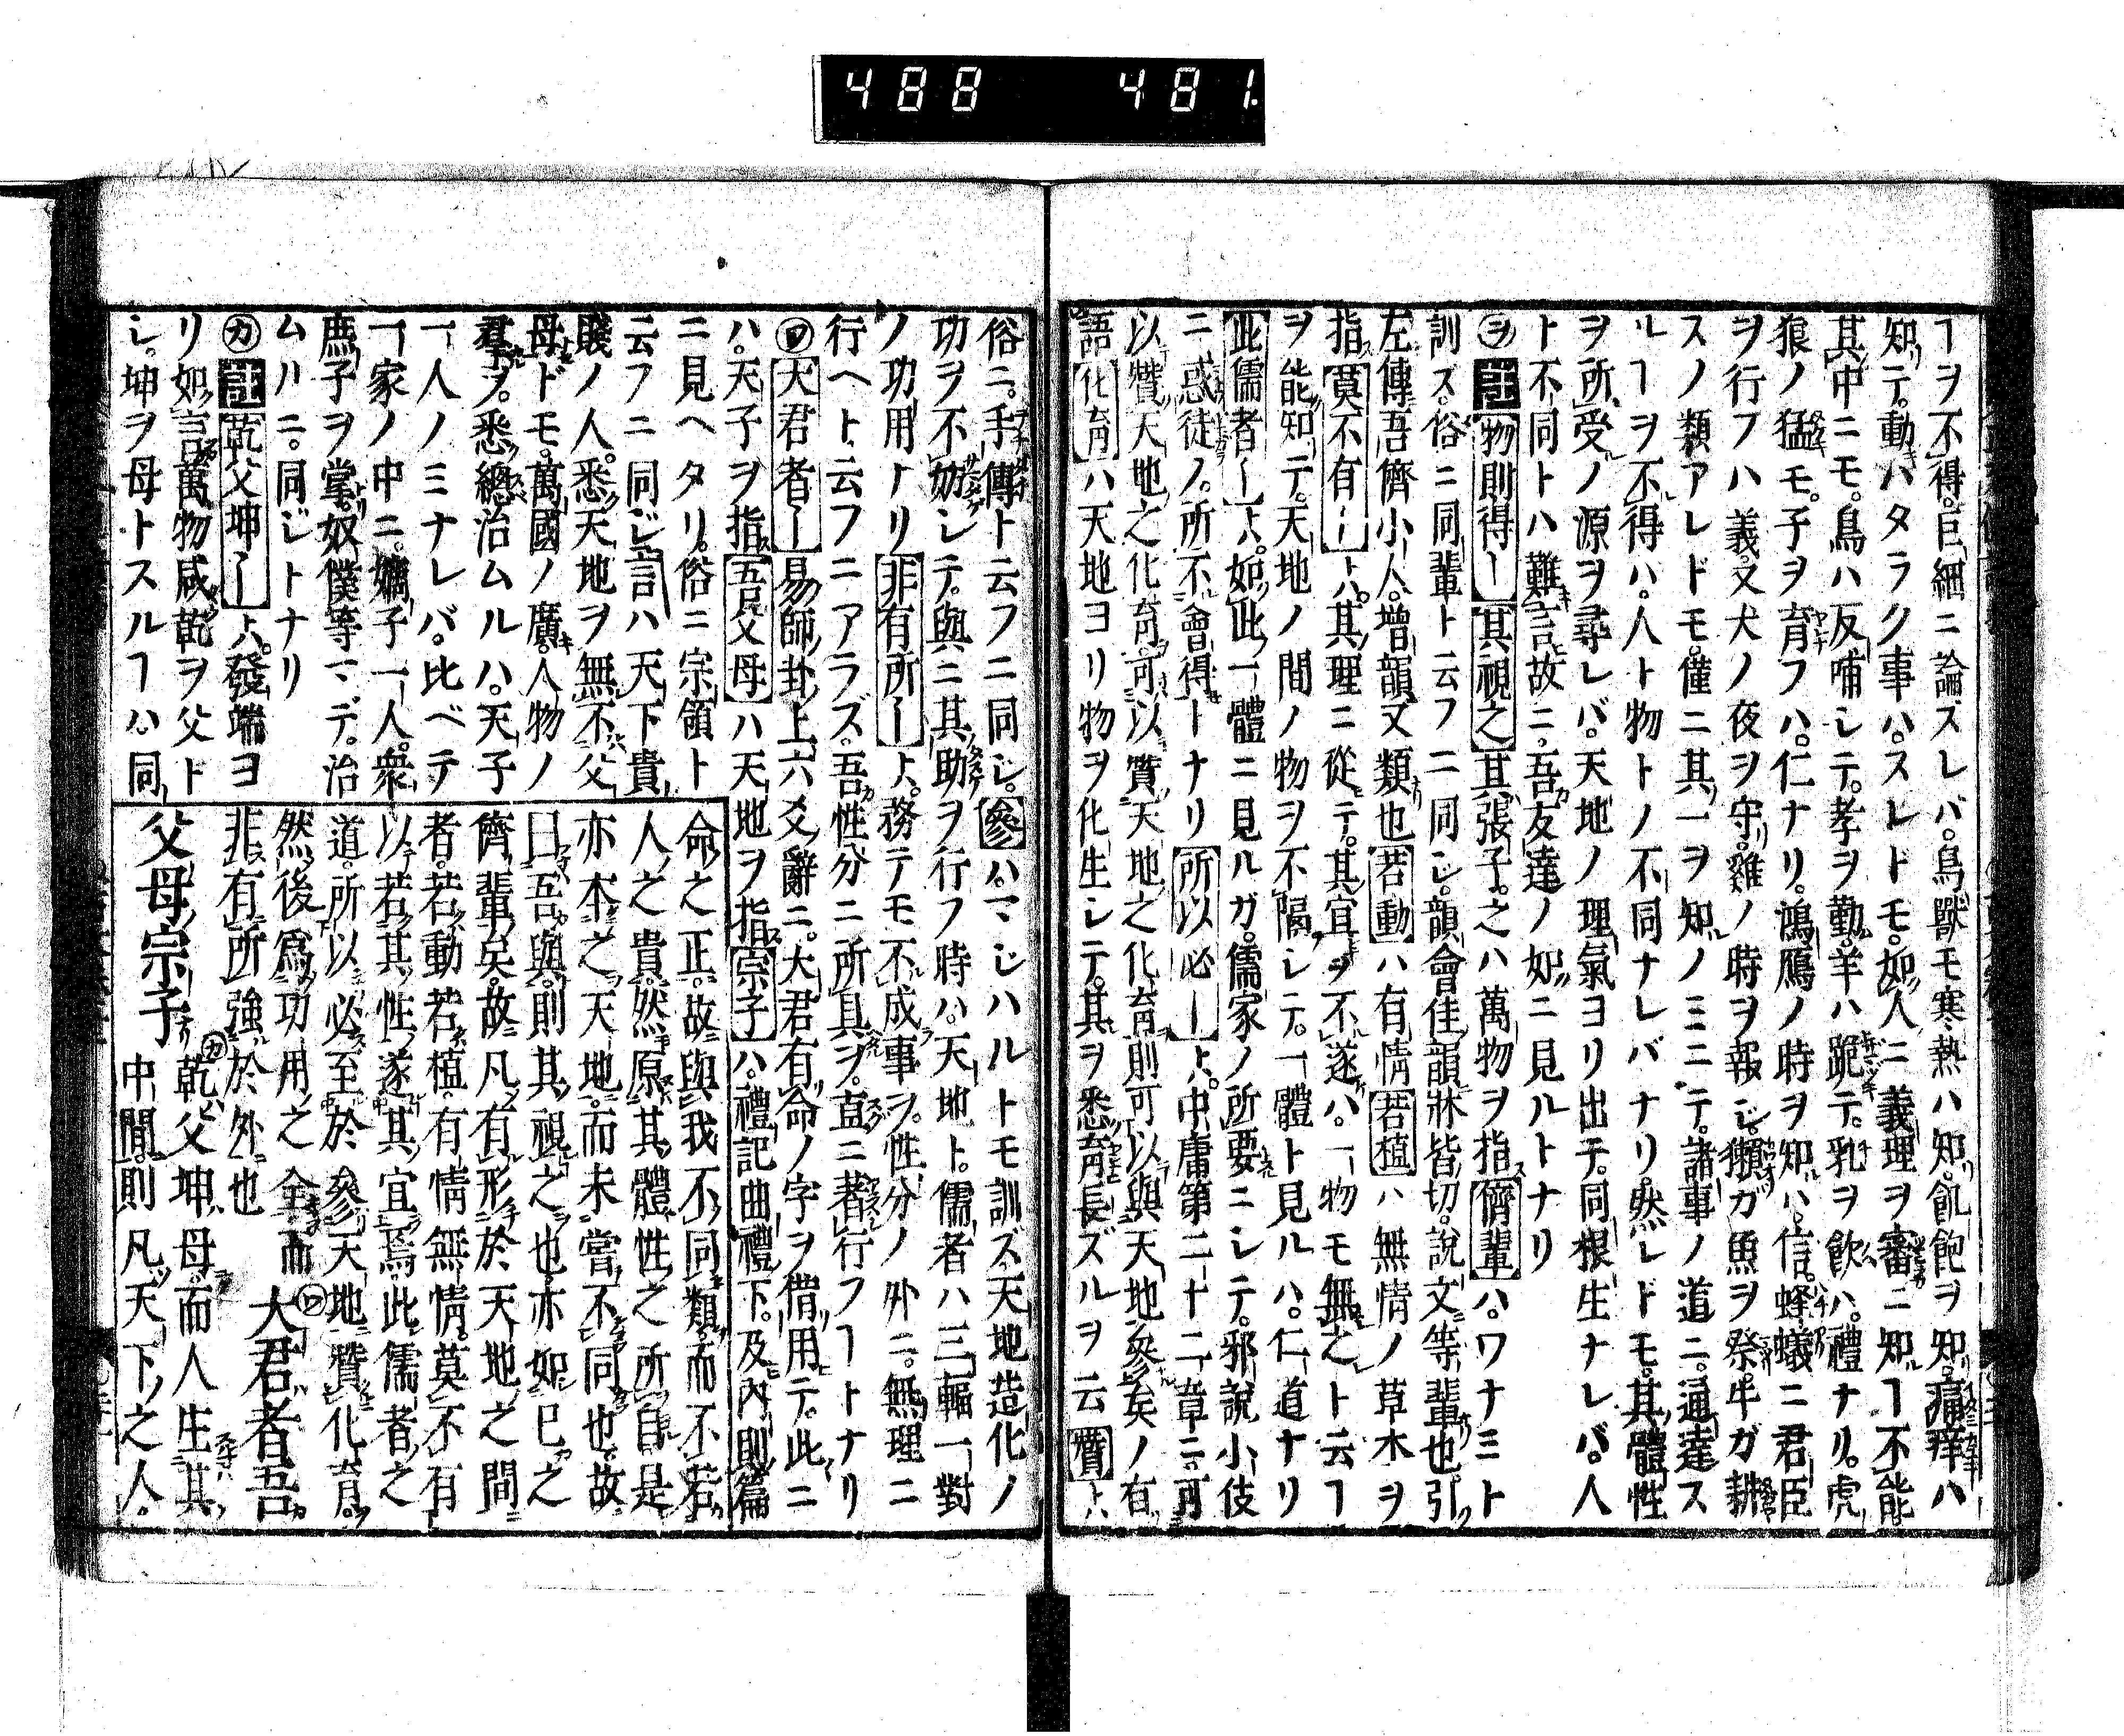 488 481
ヿヲ不得。巨細ニ論ズレバ。鳥獸モ寒熱ハ知。飢飽ヲ知。痛痒ハ
知テ。動ハタラク事ハ。スレドモ。如人ニ義理ヲ審ニ知ヿ不能
其中ニモ。烏ハ反哺シテ。孝ヲ勤。羊ハ跪テ。乳ヲ飮ハ。禮ナリ。虎
狼ノ猛モ。子ヲ育フハ。仁ナリ。鴻鴈ノ時ヲ知ハ。信。蜂蟻ニ君臣
ヲ行フハ義。又犬ノ夜ヲ守。雞ノ時ヲ報ジ。獺ガ魚ヲ祭。牛ガ耕
スノ類アレドモ。僅ニ其一ヲ知ノミニテ。諸事ノ道ニ。通達ス
ルヿヲ不得ハ。人ト物トノ不同ナレバナリ。然レドモ。其體性
ヲ所受ノ源ヲ尋レバ。天地ノ理氣ヨリ出テ。同根生ナレバ。人
ト不同トハ難言故ニ。吾友達ノ如ニ見ルトナリ
ヲ註物則得ー其視之其張子。之ハ萬物ヲ指儕輩ハ。ワナミト
訓ズ。俗ニ同輩ト云フニ同シ。韻會佳韻牀皆切。說文等輩也。引
左傳吾儕小人。增韻又類也若動ハ有情若植ハ無情ノ草木ヲ
指莫不有ートハ。其理ニ從テ。其宜ヲ不遂ハ。一物モ無之ト云ヿ
ヲ能知テ。天地ノ間ノ物ヲ不隔シテ。一體ト見ルハ。仁道ナリ
此儒者ート。如此一體ニ見ルガ。儒家ノ所要ニシテ。邪說小伎
ニ惑徒ノ。所不會得トナリ所以必ート。中庸第二十二章ニ。可
以贊天地之化育。可以贊天地之化育。則可以與天地參矣ノ有
語化育ハ天地ヨリ物ヲ化生シテ。其ヲ悉育長ズルヲ云贊トハ
俗ニ。手傳ト云フニ同シ。參ハ。マジハルトモ訓ズ。天地造化ノ
功ヲ不妨シテ。與ニ其助ヲ行フ時ハ。天地ト。儒者ハ三輻一對
ノ功用ナリ非有所ート。務テモ不成事ヲ。性分ノ外ニ。無理ニ
行ヘト云フニアラズ。吾性分ニ所具ヲ。直ニ著行フヿトナリ
ワ大君者ー易師卦上六爻辭ニ。大君有命ノ字ヲ借用テ。此ニ
ハ。天子ヲ指吾父母ハ天地ヲ指宗子ハ。禮記曲禮下。及內則篇
ニ見ヘタリ。俗ニ宗領ト
云フニ同ジ言ハ天下貴
賤ノ人。悉天地ヲ無不父
母ドモ。萬國ノ廣。人物ノ
羣ヲ。悉總治ムルハ。天子
一人ノミナレバ。比ベテ
一家ノ中ニ。嫡子一人。衆
庶子ヲ掌。奴僕等マデ。治
ムハニ。同ジトナリ
カ註乾父坤ート。發端ヨ
リ如言萬物咸乾ヲ父ト
シ。坤ヲ母トスルヿハ。同
命之正。故與我不同類。而不若
人之貴。然原其體性之所自。是
亦本之天地。而未嘗不同也。故
曰吾與。則其視之也。亦如己之
儕輩矣。故凡有形於天地之間
者。若動若植。有情無情。莫不有
以若其性。遂其宜焉。此儒者之
道。所以必至於參天地贊化育。
然後爲功用之全。而
非有所強於外也
ワ大君者吾
父母宗子
カ乾父坤母。而人生其
中間。則凡天下之人。